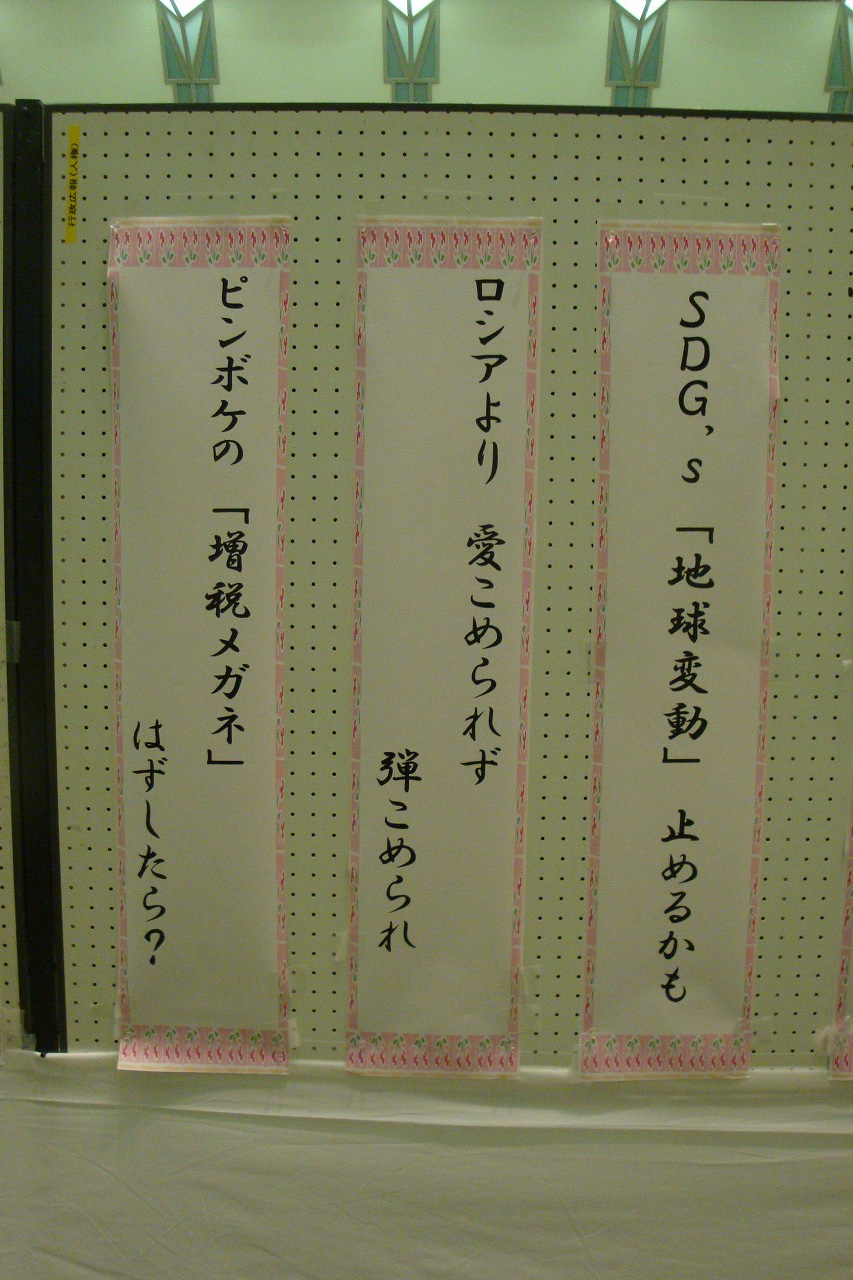 SDG,s 「地球変動」 止めるかも
ロシアより 愛こめられず
弾こめられ
ピンボケの 「増税メガネ」
はずしたら？
行政広報(人権)